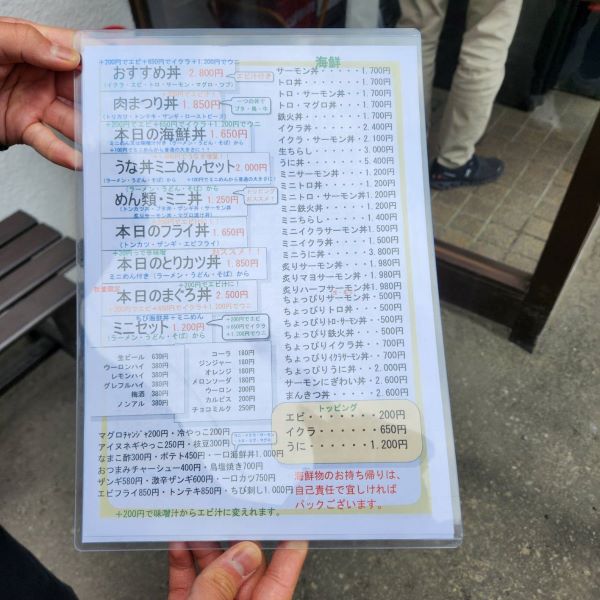 +200円でエビ+650円でイクラ+1,200円でウニ
おすすめ丼 2,800円
エビ汁付き
(イクラ・エビ・トロ・サーモン・マグロ・ツブ)
肉まつり丼 1,850円
一つの丼で
(トリカツ・トンテキ・ザンギ・ローストビーフ)
+200円でエビ+650円でイクラ+1,200円でウニ
本日の海鮮丼 1,650円
うな丼ミニめんセット 2,000円
(ラーメン・うどん・そば)から
めん類・ミニ丼 1,250円
トッピング
おススメ！
本日のフライ丼 1,650円
(トンカツ・ザンギ・エビフライ)
おススメ！！
本日のとりカツ丼 1,850円
ミニめん付き(ラーメン・うどん・そば)から
数量限定
本日のまぐろ丼 2,500円
+200円でエビ+650円でイクラ+1,200円でウニ
ちび海鮮丼+ミニめん
ミニセット 1,200円
(ラーメン・うどん・そば)から
+200円でエビ
+650円でイクラ
+1,200円でウニ
生ビール 630円
ウーロンハイ 380円
レモンハイ 380円
グレフルハイ 380円
梅酒 380円
ノンアル 380円
コーラ 180円
ジンジャー 180円
オレンジ 180円
メロンソーダ 180円
ウーロン 200円
カルピス 200円
チョコミルク 250円
マグロﾁｬﾝｼﾞ+200円・冷やっこ200円
アイヌネギやっこ250円・枝豆300円
なまこ酢300円・ポテト450円・一口海鮮丼1,000円
おつまみチャーシュー400円・鳥塩焼き700円
ザンギ580円・激辛ザンギ600円・一口カツ750円
エビフライ850円・トンテキ850円・ちび刺し1,000円
+200円で味噌汁からエビ汁に変えれます。
海鮮
サーモン丼・・・・・・1,700円
トロ丼・・・・・・・・1,700円
トロ・サーモン丼・・・1,700円
トロ・マグロ丼・・・・1,700円
鉄火丼・・・・・・・・1,700円
イクラ丼・・・・・・・2,400円
イクラ・サーモン丼・・2,100円
生ちらし・・・・・・・3,000円
うに丼・・・・・・・・5,400円
ミニサーモン丼・・・・1,200円
ミニトロ丼・・・・・・1,200円
ミニトロ・サーモン丼・1,200円
ミニ鉄火丼・・・・・・1,200円
ミニちらし・・・・・・1,400円
ミニイクラサーモン丼・1,500円
ミニイクラ丼・・・・・1,600円
ミニうに丼・・・・・・3,800円
炙りサーモン丼・・・・1,980円
炙りマヨサーモン丼・・1,980円
炙りハーフサーモン丼・1,980円
ちょっぴりサーモン丼・・500円
ちょっぴりトロ丼・・・・500円
ちょっぴりﾄﾛ･ｻｰﾓﾝ丼・・500円
ちょっぴり鉄火丼・・・・500円
ちょっぴりｲｸﾗｻｰﾓﾝ丼・・700円
ちょっぴりうに丼・・2,000円
サーモンにぎわい丼・2,600円
まんきつ丼・・・・・2,600円
トッピング
エビ・・・・・・・200円
イクラ・・・・・・650円
うに・・・・・・1,200円
海鮮物のお持ち帰りは、
自己責任で宜しければ
パックございます。